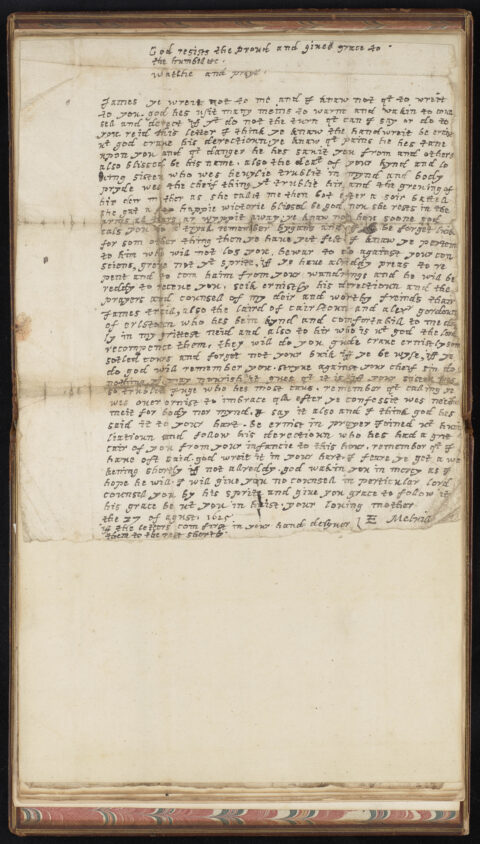 God resists the proud and gives grace to
the humbil etc.
Watche and praye.
James ye wreit not to me and I knaw not qt to wreit
to you. god hes usit many meins to warne and wakin to coun
sell and if ye do not the turn qt can I say or do to
you. reid this letter I think ye knaw the handwreit be
qt god crave his derectioun. ye knaw qt paine he hes tane
upon you and qt danger he hes savit you from and others
also blissed be his name. also the deat of your kynd and lo
ving sister who wes trublit in mynd and body
pryde wes the cheif thing yt trublit hir, and the greving of
hir as she calit me then bot efter a soir battell
she gat a happie victorie blissed be god. now she rests in the
ar wyppit away. ye knaw not how soone god
cals you to tryal. remember bygans and be forget
for som other thing then ye have yet felt. I knaw ye
to him who will not los you. bewar to do against your con
grive not yt sprite. if ye have alredy preas to re
pent and to com haim from your wandrings and he will be
redy to receve you. seik ernistly his directioun and the
prayers and counsell of my deir and worthy frinds
James traill, also the laird of cairstoun and alexr gordoun
of erlstoun who hes bein kynd and comfortabill to me
ly in my grittest neid and also to hir who is qt god the lord
recompence them. they will do you gude crave ernistly
and forget not your buik if ye be wyse. if ye
do god will remember you. stryve against your cheif sin do
nothing yt may nourish it give qt it is if your sister wes
so trublit pryd who hes most caus. remember qt
wes over ernist to imbrace qlk efter ye confessit was nether
meit for body nor mynd. I say it also and I think god hes
said it to your hart. be ernist in prayer joined wt humi
liatioun and follow his derectioun who hes had a gret
cair of you from your infancie to this hour. remember qt I
have oft said. god wreit it in your hart. I feare ye get a wa
kening shortly if not alredy. god wakin you in mercy as I
hope he will. I will give you no counsell in perticular lord
counsell you by his sprite and give you grace to follow it
his grace be wt you in heist. your loving mother
the 27 of agust 1625 E Melvill
if the letters com first in your hand delyver
them to the rest shortly.